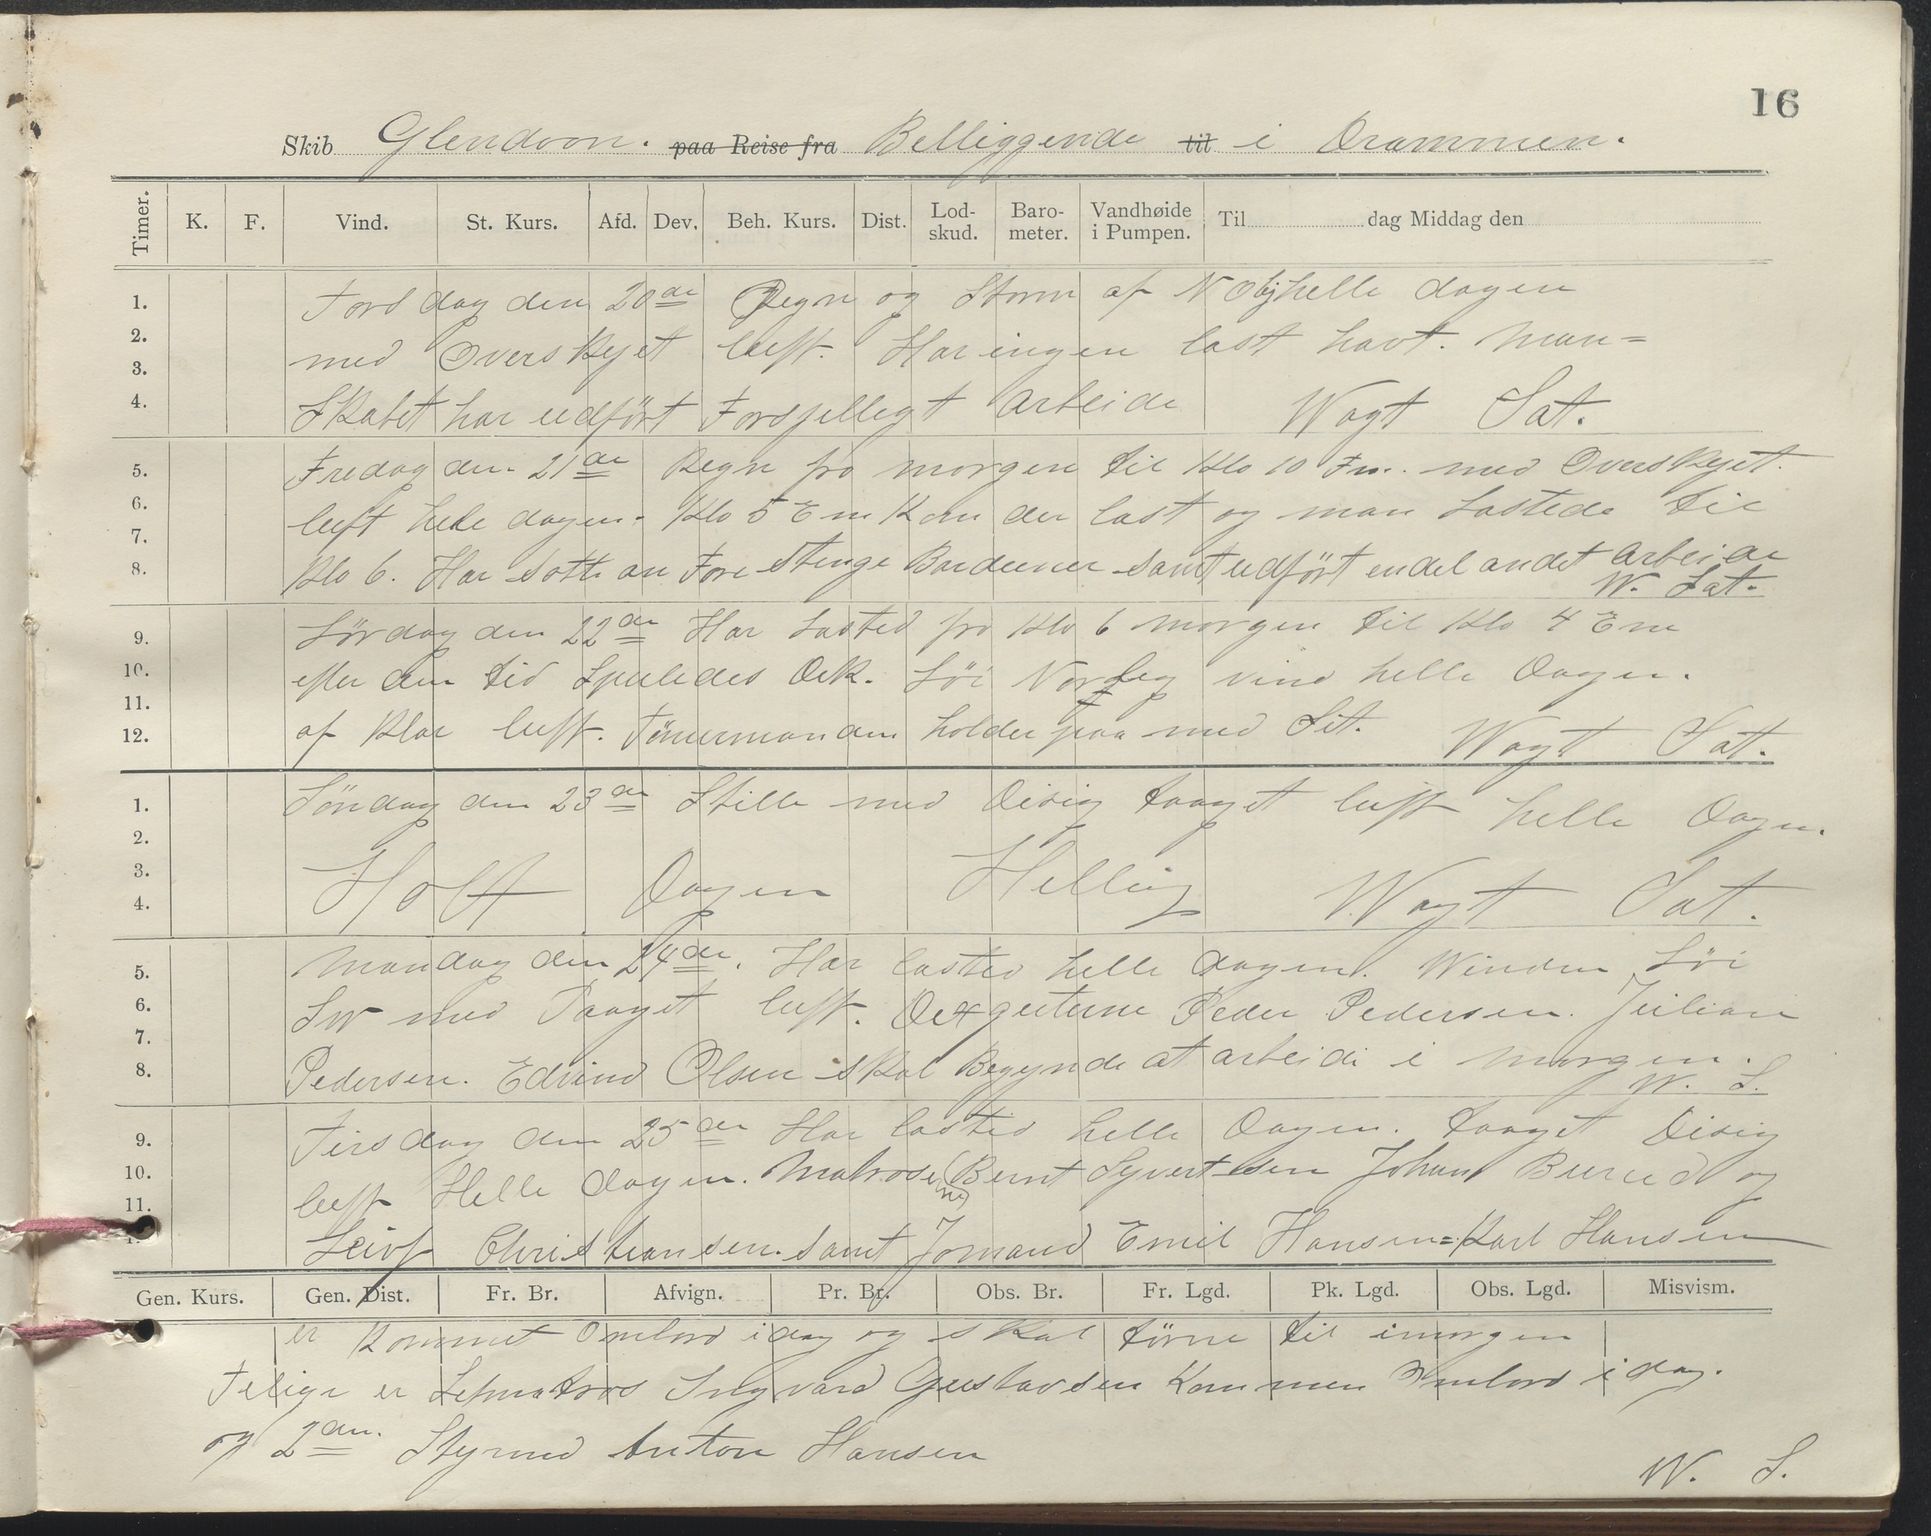 16
Skib Glendoon. paa Reise fra Belliggende til i Drammen.
Timer. K. F. Vind. St. Kurs. Afd. Dev. Beh. Kurs. Dist. Lod-skud. Baro-meter. Vandhøide i Pumpen. Til dag Middag den
1. Torsdag den 20de Regn og Storm af N Obj helle dagen
2. med Overskyet luft. Har ingen last havt. Man=
3.
4. Skabet har udført Forsjelligt Arbeide Wagt Sat.
5. Fredag den 21de Regn fra morgen til Klo 10 Fm. med Overskyet.
6. luft hele dagen. Klo 5 Em Kom der last og man Lastede til
7.
8. Klo 6. Har satte an Fore Stenge Barduner samt udført endel andet Arbeide
W. Sat.
9. Lørdag den 22de Har Lasted fra Klo 6 morgen til Klo 4 Em
10. efter den tid Spuledes Dek. Søi Nordleg vind helle Dagen.
11.
12. af Klar luft. Tømermanden holder paa med Sit. Wagt Sat.
1. Søndag den 23de Stille med Disig taaget luft helle Dagen.
2.
3. Holt Dagen Hellig Wagt Sat.
4.
5. Mandag den 24de. Har lasted helle dagen. Winden Søi
6. SW med Taaget luft. Deksguterne Peder Pedersen. Julian
7.
8. Pedersen. Edvind Olsen skal Begynde at arbeide i morgen.
W. S.
9. Tirsdag den 25de Har lasted helle Dagen. taaget Disig
10. luft Helle dagen. Matrose(ne) Bernt Syvertsen Johan Buerud og
11. Leivf Christiansen. samt Jomand Emil Hansen = Karl Hansen
Gen. Kurs. Gen. Dist. Fr. Br. Afvign. Pr. Br. Obs. Br. Fr. Lgd. Pk. Lgd. Obs. Lgd. Misvism.
er kommet Ombord idag og skal tørne til imorgen
Telige er Letmatros Ingvard Gustavsen Kommen Ombord idag.
og 2den. Styrmd Anton Hansen
W. S.